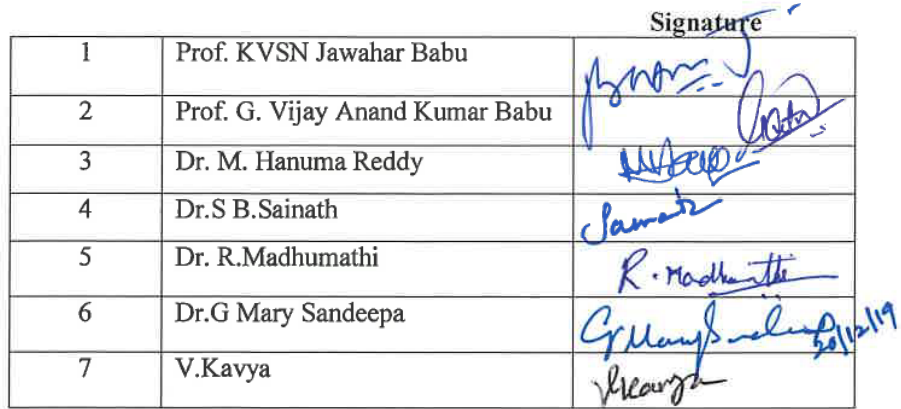 Signature
1 Prof. KVSN Jawahar Babu
2 Prof. G. Vijay Anand Kumar Babu
3 Dr. M. Hanuma Reddy
4 Dr.S B.Sainath
5 Dr. R.Madhumathi R. Madhumathi
6 Dr.G Mary Sandeepa G Mary Sandeepa 20/12/19
7 V.Kavya V.Kavya